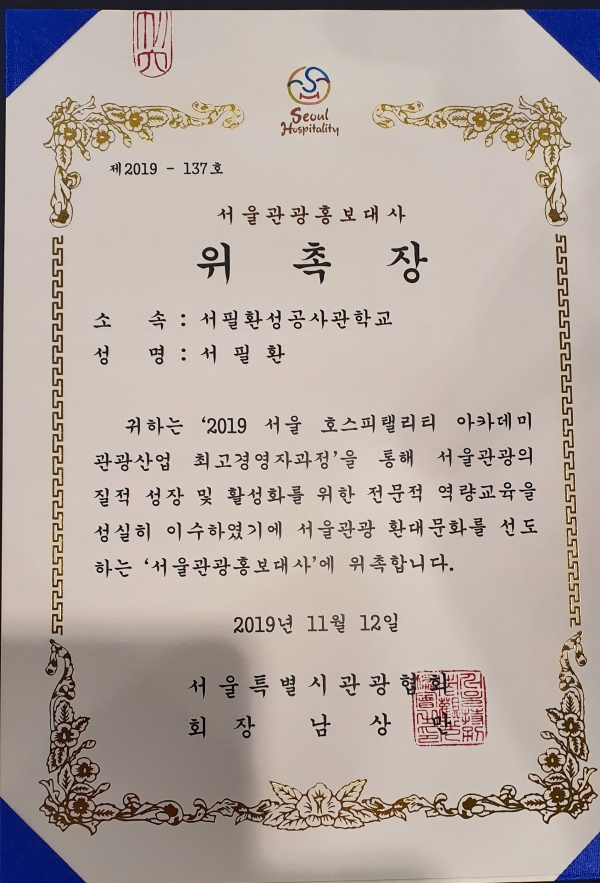 Seoul
Hospitality
제2019 - 137호
서울관광홍보대사
위 촉 장
소 속 : 서필환성공사관학교
성 명 : 서 필 환
귀하는 '2019 서울 호스피탤리티 아카데미
관광산업 최고경영자과정'을 통해 서울관광의
질적 성장 및 활성화를 위한 전문적 역량교육을
성실히 이수하였기에 서울관광 환대문화를 선도
하는 '서울관광홍보대사'에 위촉합니다.
2019년 11월 12일
서울특별시관광협회
회 장 남 상 만